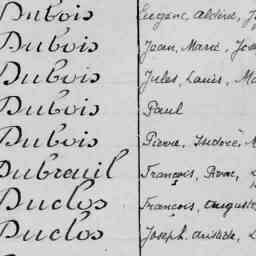 Dubois Eugène, Aldéric,
Dubois Jean, Marie,
Dubois Jules, Louis,
Dubois Paul
Dubois Pierre, Isidore,
Dubreuil François,
Duclos François, Auguste
Duclos Joseph, Aristide,